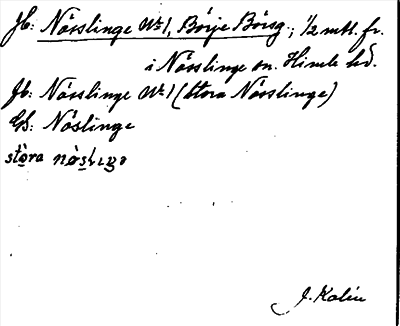 Jb: Nösslinge Nr 1, Börje Börsg.; 1/2 mtl. fr.
i Nösslinge sn. Himle hd.
Jb: Nösslinge Nr 1 (Stora Nösslinge)
GS: Nöslinge
stora
J. Kalén